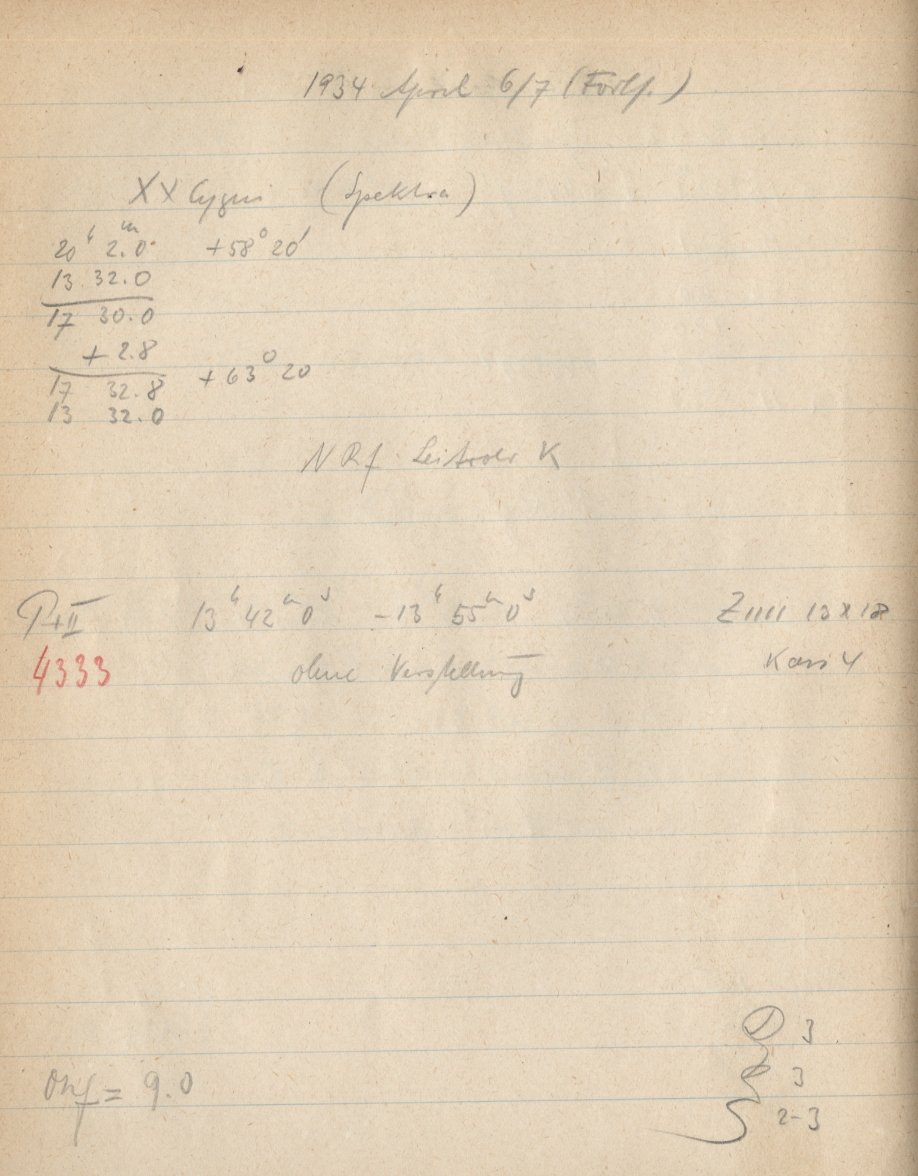 1934 April 6/7 (Forts.)
XX Cygni (Spektra)
20ʰ 2.0ᵐ +58° 20'
13 32.0
17 30.0
+ 2.8
17 32.8 +63° 20
13 32.0
NRf. Leitrohr K
P+II 13ʰ 42ᵐ 0ˢ – 13ʰ 55ᵐ 0ˢ 13x18
4333 ohne Verstellung Kass 4
3
3
= 9.0
2-3